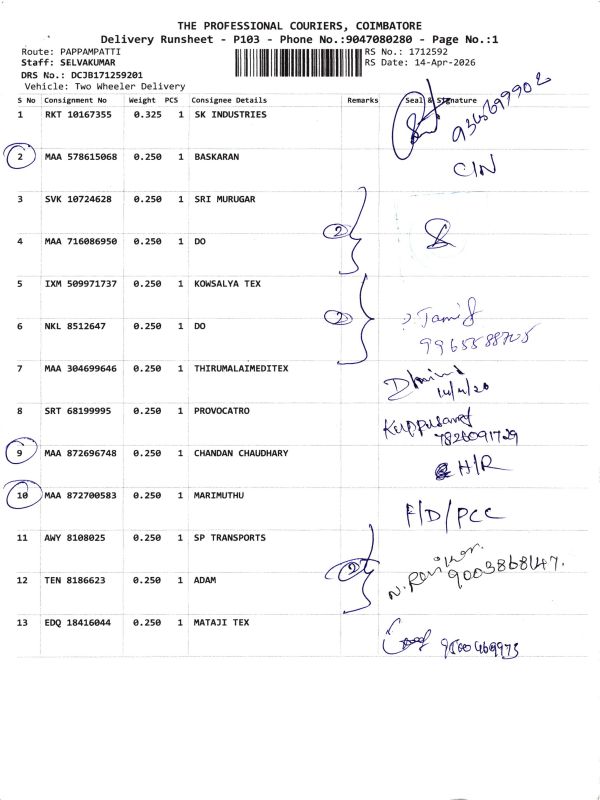 THE PROFESSIONAL COURIERS, COIMBATORE
Delivery Runsheet - P103 - Phone No.:9047080280 - Page No.:1
Route: PAPPAMPATTI RS No.: 1712592
Staff: SELVAKUMAR RS Date: 14-Apr-2026
DRS No.: DCJB171259201
Vehicle: Two Wheeler Delivery
S No Consignment No Weight PCS Consignee Details Remarks Seal & Signature
1 RKT 10167355 0.325 1 SK INDUSTRIES
2 MAA 578615068 0.250 1 BASKARAN C/N
3 SVK 10724628 0.250 1 SRI MURUGAR
2
4 MAA 716086950 0.250 1 DO
5 IXM 509971737 0.250 1 KOWSALYA TEX
2 Tamil
6 NKL 8512647 0.250 1 DO 9965588705
7 MAA 304699646 0.250 1 THIRUMALAIMEDITEX
14/4/26
8 SRT 68199995 0.250 1 PROVOCATRO
7826091729
9 MAA 872696748 0.250 1 CHANDAN CHAUDHARY H/R
10 MAA 872700583 0.250 1 MARIMUTHU F/D/PCC
11 AWY 8108025 0.250 1 SP TRANSPORTS
2 9003868147.
12 TEN 8186623 0.250 1 ADAM
13 EDQ 18416044 0.250 1 MATAJI TEX 9500469973